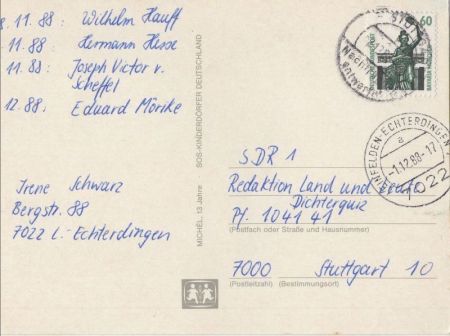 11.88: Wilhelm Hauff
11.88: Hermann Hesse
11.88: Joseph Victor v.
Scheffel
12.88: Eduard Mörike
Irene Schwarz
Bergstr. 88
7022 L.-Echterdingen
MICHEL, 13 Jahre
SOS-KINDERDÖRFER DEUTSCHLAND
60
LEINFELDEN-ECHTERDINGEN
a
-1.12.88-17
7022
SDR 1
Redaktion Land und Leute
Dichterquiz
Pf. 1041 41
(Postfach oder Straße und Hausnummer)
7000 Stuttgart 10
(Postleitzahl) (Bestimmungsort)